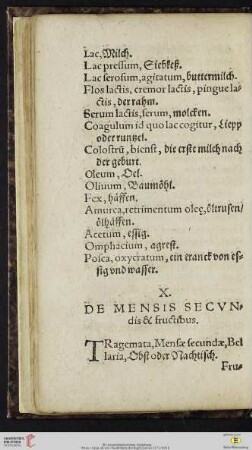 Lac, Milch.
Lac pressum, Siebkeß.
Lac serosum, agitatum, buttermilch.
Flos lactis, cremor lactis, pingue la-
ctis, der rahm.
Serum lactis, serum, molcken.
Coagulum id quo lac cogitur, Liepp
oder runtzel.
Colostrū, bienst, die erste milch nach
der geburt.
Oleum, Oel.
Oliuum, Baumöhl.
Fex, häffen.
Amurca, retrimentum oleę, öltrusen/
ölhäffen.
Acetum, essig.
Omphacium, agrest.
Posca, oxycratum, ein tranck von es-
sig vnd wasser.
X.
DE MENSIS SECVN-
dis & fructibus.
TRagemata, Mensæ secundæ, Bel
laria, Obst oder Nachtisch.
Fru-